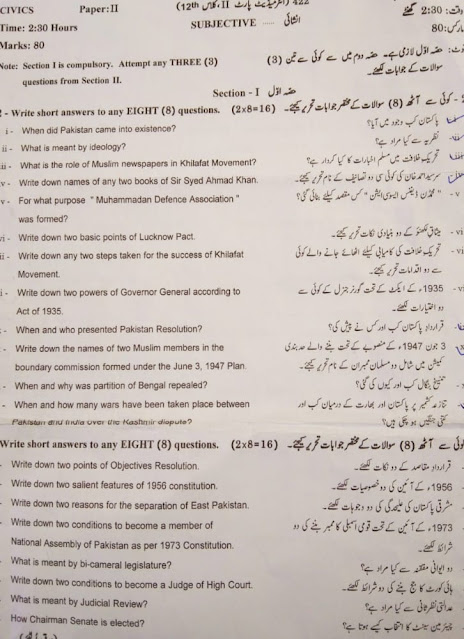 CIVICS Paper:II (انٹرمیڈیٹ پارٹ II، کلاس 12th) 422 وقت: 2:30 گھنٹے
Time: 2:30 Hours SUBJECTIVE ...... انشائی مارکس:80
Marks: 80
Note: Section I is compulsory. Attempt any THREE (3) نوٹ: حصہ اوّل لازمی ہے۔ حصہ دوم میں سے کوئی سے تین (3)
questions from Section II. سوالات کے جوابات لکھئے۔
Section - I حصہ اوّل
2 - Write short answers to any EIGHT (8) questions. (2x8=16) کوئی سے آٹھ (8) سوالات کے مختصر جوابات تحریر کیجئے۔
i - When did Pakistan came into existence? پاکستان کب وجود میں آیا؟
ii - What is meant by ideology? نظریہ سے کیا مراد ہے؟
iii - What is the role of Muslim newspapers in Khilafat Movement? تحریک خلافت میں مسلم اخبارات کا کیا کردار ہے؟
iv - Write down names of any two books of Sir Syed Ahmad Khan. سرسید احمد خان کی کوئی سی دو تصانیف کے نام تحریر کیجئے۔
v - For what purpose " Muhammadan Defence Association " "محمڈن ڈیفنس ایسوسی ایشن" کس مقصد کیلئے بنائی گئی؟ - v
was formed?
vi - Write down two basic points of Lucknow Pact. میثاق لکھنؤ کے دو بنیادی نکات تحریر کیجئے۔ - vi
ii - Write down any two steps taken for the success of Khilafat تحریک خلافت کی کامیابی کیلئے اٹھائے جانے والے کوئی
Movement. سے دو اقدامات تحریر کیجئے۔
i - Write down two powers of Governor General according to 1935ء کے ایکٹ کے تحت گورنر جنرل کے کوئی سے
Act of 1935. دو اختیارات لکھئے۔
- When and who presented Pakistan Resolution? قرارداد پاکستان کب اور کس نے پیش کی؟
- Write down the names of two Muslim members in the 3 جون 1947ء کے منصوبے کے تحت بننے والے حد بندی
boundary commission formed under the June 3, 1947 Plan. کمیشن میں شامل دو مسلمان ممبران کے نام تحریر کیجئے۔
- When and why was partition of Bengal repealed? تنسیخ بنگال کب اور کیوں کی گئی؟
- When and how many wars have been taken place between تنازعہ کشمیر پر پاکستان اور بھارت کے درمیان کب اور
Pakistan and India over the Kashmir dispute? کتنی جنگیں ہو چکی ہیں؟
Write short answers to any EIGHT (8) questions. (2x8=16) کوئی سے آٹھ (8) سوالات کے مختصر جوابات تحریر کیجئے۔
- Write down two points of Objectives Resolution. قرارداد مقاصد کے دو نکات لکھئے۔
- Write down two salient features of 1956 constitution. 1956ء کے آئین کی دو خصوصیات لکھئے۔
- Write down two reasons for the separation of East Pakistan. مشرقی پاکستان کی علیحدگی کی دو وجوہات لکھئے۔
- Write down two conditions to become a member of 1973ء کے آئین کے تحت قومی اسمبلی کا ممبر بننے کی دو
National Assembly of Pakistan as per 1973 Constitution. شرائط لکھئے۔
- What is meant by bi-cameral legislature? دو ایوانی مقننہ سے کیا مراد ہے؟
- Write down two conditions to become a Judge of High Court. ہائی کورٹ کا جج بننے کی دو شرائط لکھئے۔
- What is meant by Judicial Review? عدالتی نظرثانی سے کیا مراد ہے؟
- How Chairman Senate is elected? چیئرمین سینٹ کا انتخاب کیسے ہوتا ہے؟